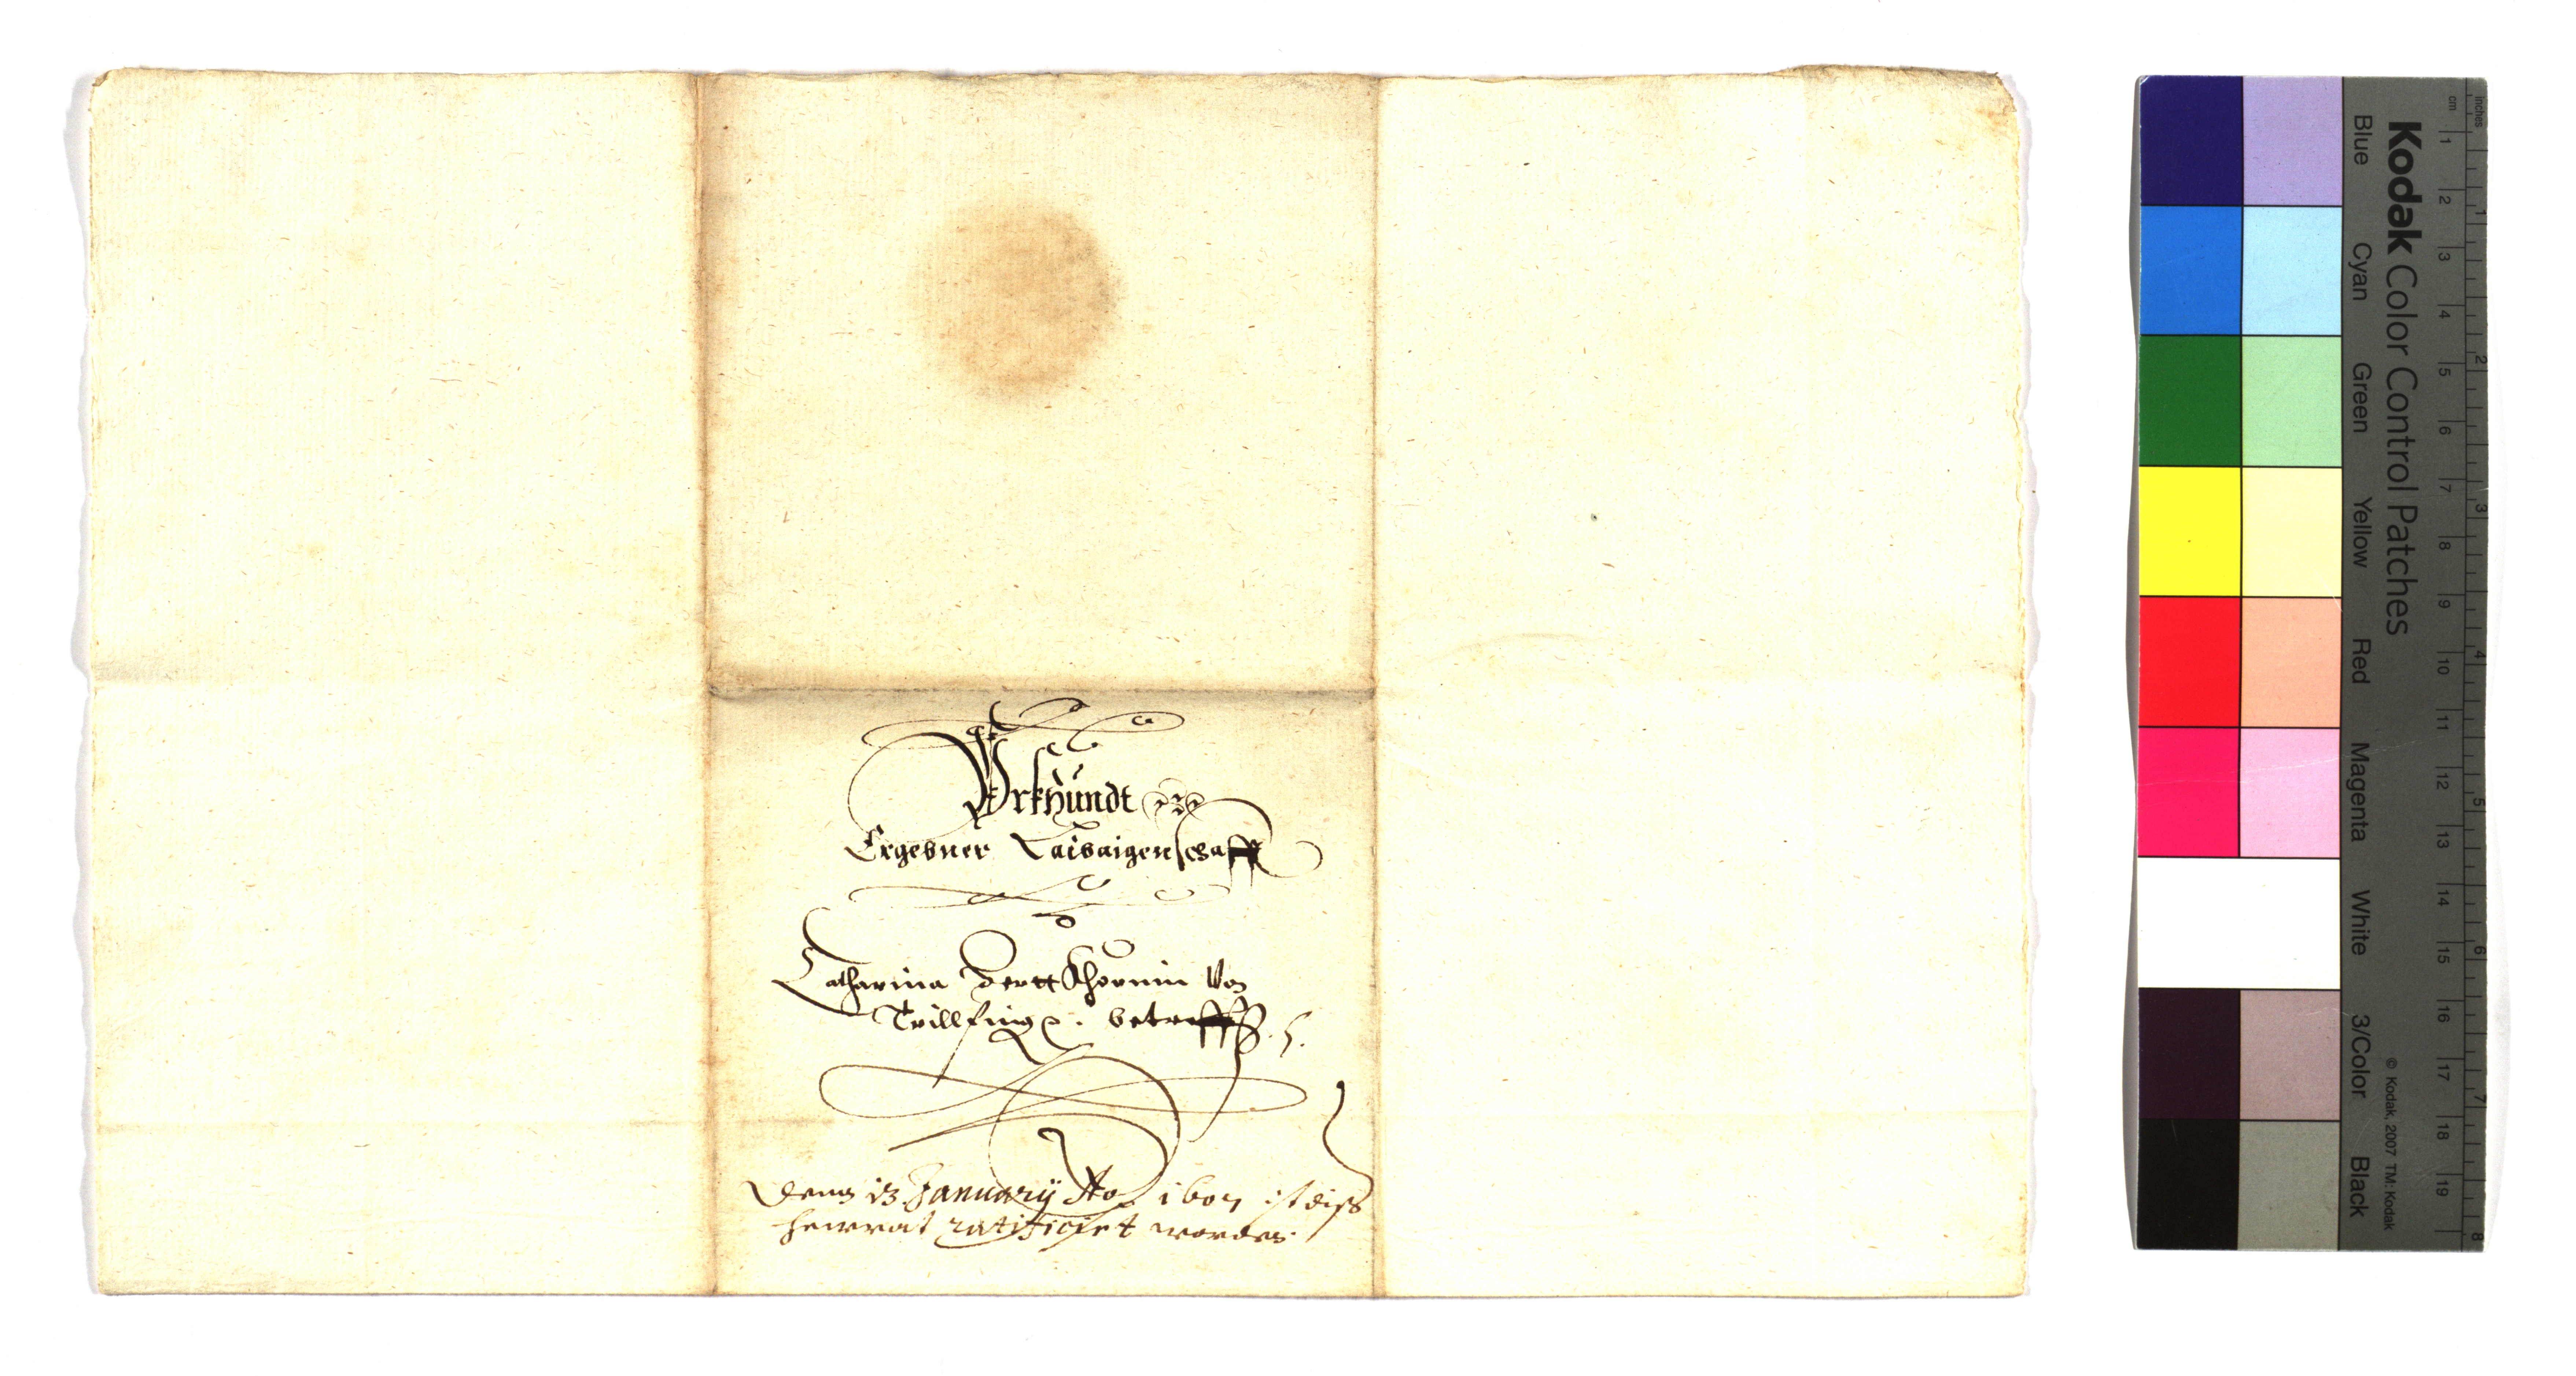 Vrkhundt
Ergebner Laibaigenschafft
Catharina Dertt Khornin Von
Trillfing. betreff.
Denn 13 January Ao 1607 ist diß
heurrat ratificiert worden
Kodak Color Control Patches
Blue Cyan Green Yellow Red Magenta White 3/Color Black
inches 1 2 3 4 5 6 7 8
cm 1 2 3 4 5 6 7 8 9 10 11 12 13 14 15 16 17 18 19
© Kodak, 2007 TM: Kodak